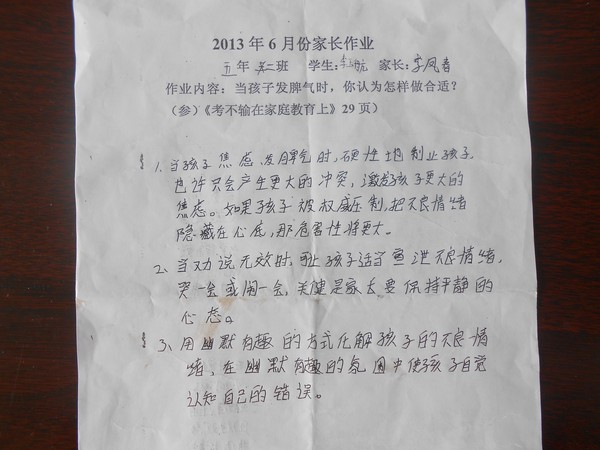 2013 年 6 月份家长作业
五 年 二 班 学生: 航 家长: 李凤春
作业内容：当孩子发脾气时，你认为怎样做合适？
（参）《考不输在家庭教育上》29 页）
1、当孩子焦虑、发脾气时,硬性地制止孩子,
也许只会产生更大的冲突,激发孩子更大的
焦虑。如果孩子被权威压制,把不良情绪
隐藏在心底,那危害性将更大。
2、当劝说无效时,可让孩子适当宣泄不良情绪,
哭一会或闹一会,关健是家长要保持平静的
心态。
3、用幽默有趣的方式化解孩子的不良情
绪、在幽默有趣的氛围中使孩子自觉
认知自己的错误。